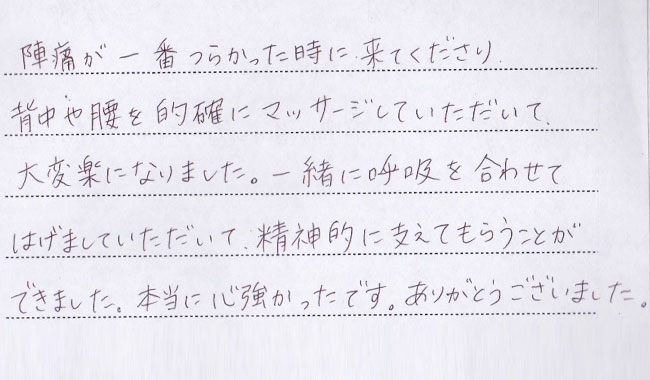 陣痛が一番つらかった時に来てくださり
背中や腰を的確にマッサージしていただいて、
大変楽になりました。一緒に呼吸を合わせて
はげましていただいて、精神的に支えてもらうことが
できました。本当に心強かったです。ありがとうございました。